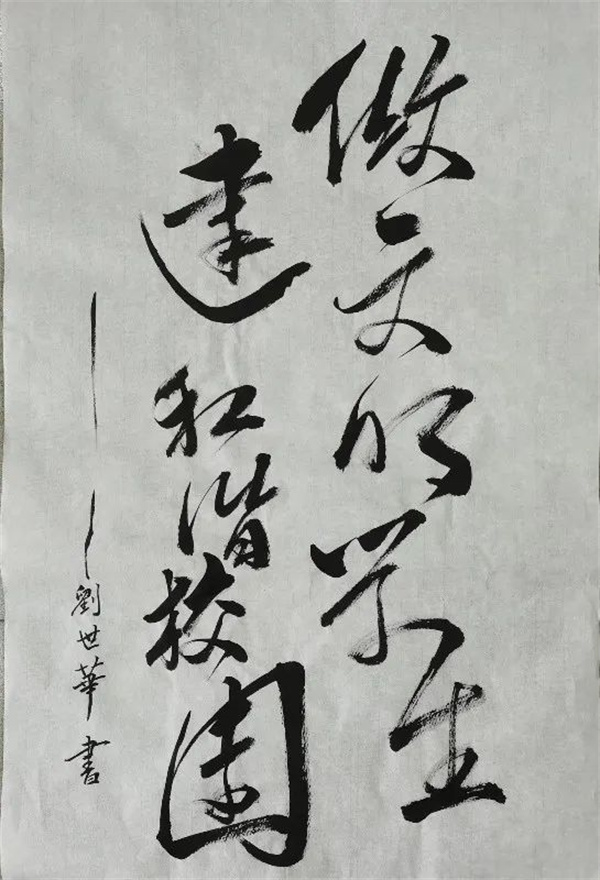 做文明学生
建和谐校園
劉世華書